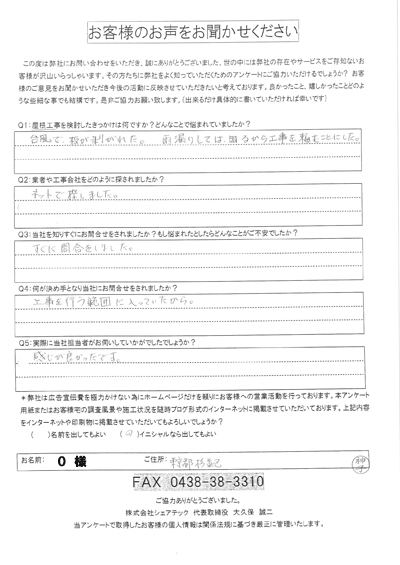 お客様のお声をお聞かせください
この度は弊社にお問い合わせをいただき、誠にありがとうございました。世の中には弊社の存在やサービスをご存知ないお
客様が沢山いらっしゃいます。その方たちに弊社をよく知っていただくためのアンケートにご協力いただけるでしょうか？お客
様のご意見をお聞かせいただき今後の活動に反映させていただきたいと考えております。良かったこと、嬉しかったことどの
ような些細な事でも結構です、是非ご協力お願い致します。（出来るだけ具体的に書いていただければ幸いです）
Q1：屋根工事を検討したきっかけは何ですか？どんなことで悩まれていましたか？
台風で、板が剥がれた。雨漏りしては、困るから工事を頼むことにした。
Q2：業者や工事会社をどのように探されましたか？
ネットで探しました。
Q3：当社を知りすぐにお問合せをされましたか？もし悩まれたとしたらどんなことがご不安でしたか？
すぐに問合をしました。
Q4：何が決め手となり当社にお問合せをされましたか？
工事を行う範囲に入っていたから。
Q5：実際に当社担当者がお伺いしていかがでしたでしょうか？
感じが良かったです。
＊弊社は広告宣伝費を極力かけない為にホームページだけを頼りにお客様への営業活動を行っております。本アンケート
用紙またはお客様宅の調査風景や施工状況を随時ブログ形式のインターネットに掲載させていただいております。上記内容
をインターネットや印刷物に掲載させていただいてもよろしいでしょうか？
（　）名前を出してもよい　（○）イニシャルなら出してもよい
お名前：　O 様　ご住所：
FAX 0438-38-3310
ご協力ありがとうございました。
株式会社シェアテック　代表取締役　大久保 誠二
当アンケートで取得したお客様の個人情報は関係法規に基づき厳正に管理いたします。